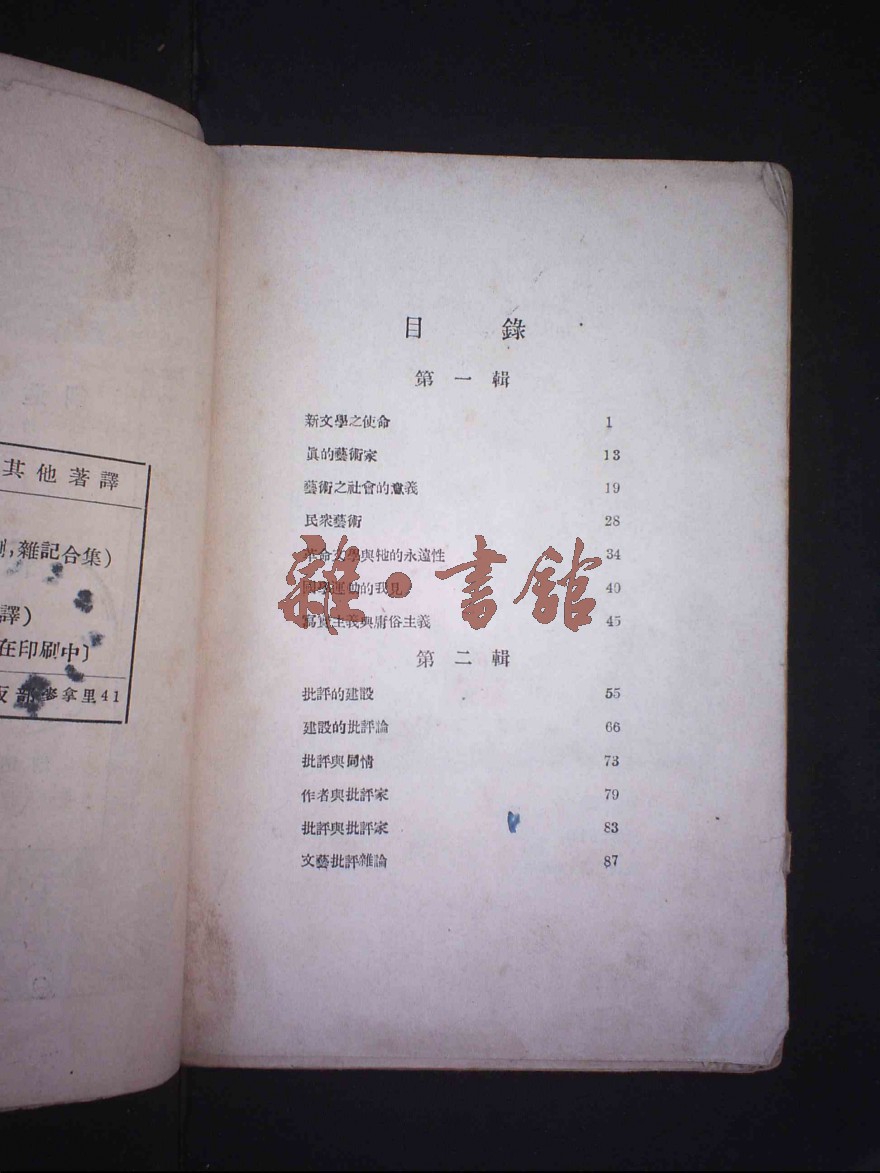 其他著譯
雜記合集)
譯)
在印刷中〕
部麥拿里41
目錄
第一輯
新文學之使命 1
眞的藝術家 13
藝術之社會的意義 19
民衆藝術 28
革命文學與牠的永遠性 34
國學運動的我見 40
寫實主義與庸俗主義 45
第二輯
批評的建設 55
建設的批評論 66
批評與同情 73
作者與批評家 79
批評與批評家 83
文藝批評雜論 87
雜·書館